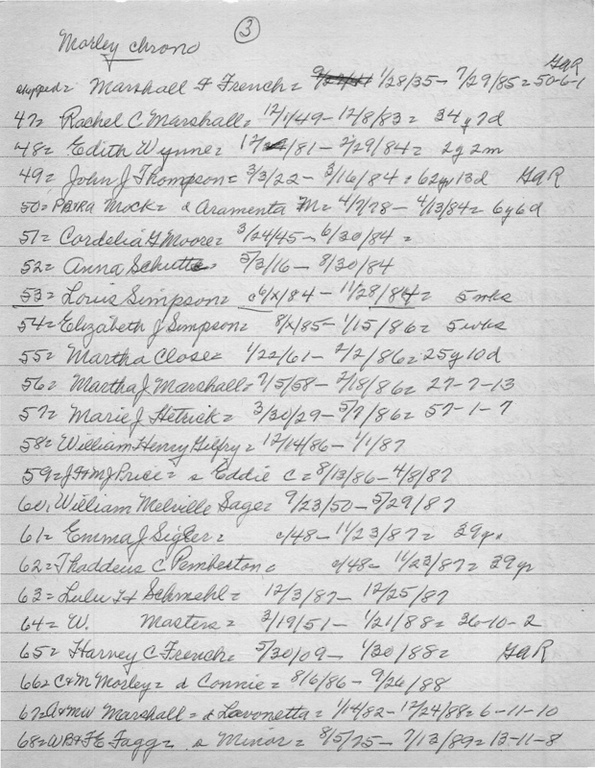 3
Morley chrono
skipped= Marshall F French= 1/28/35- 7/29/85= 50-6-1 GAR
47= Rachel C Marshall= 12/1/49- 12/8/83= 34y7d
48= Edith Wynne= 12/ /81- 2/29/84= 2y2m
49= John J Thompson= 3/3/22- 3/16/84= 62y13d GAR
50= Mock= d Aramenta M= 4/7/78- 4/13/84= 6y6d
51= Cordelia G Moore= 3/24/45- 6/30/84=
52= Anna Schutte 5/3/16- 8/30/84
53= Louis Simpson= c6/x/84- 11/28/84= 5mks
54= Elizabeth J Simpson= 8/x/85- 1/15/86= 5wks
55= Martha Close= 1/22/61- 2/2/86= 25y10d
56= Martha J. Marshall= 7/5/58- 2/18/86= 27-7-13
57= Marie J Hetrick= 3/30/29- 5/7/86= 57-1-7
58= William Henry Gilfry= 12/14/86- 1/1/87
59= J F+MJ Price= s Eddie C= 8/13/86- 4/8/87
60, William Melville Sage= 9/23/50- 5/29/87
61= Emma J Sigler= c/48- 11/23/87= 39y.
62= Thaddeus C Pemberton= c/48- 11/23/87= 39yr
63= Lulu Schmehl= 12/3/87- 12/25/87
64= W. Masters= 3/19/51- 1/21/88= 36-10-2
65= Harvey C French= 5/30/09- 1/30/88= GAR
66= C+M Morley= d Connie= 8/6/86- 9/26/88
67= A+MW Marshall= d Lavonetta= 1/14/82- 12/24/88= 6-11-10
68= WB+FE Fagg= s Minor= 8/5/75- 7/13/89= 13-11-8